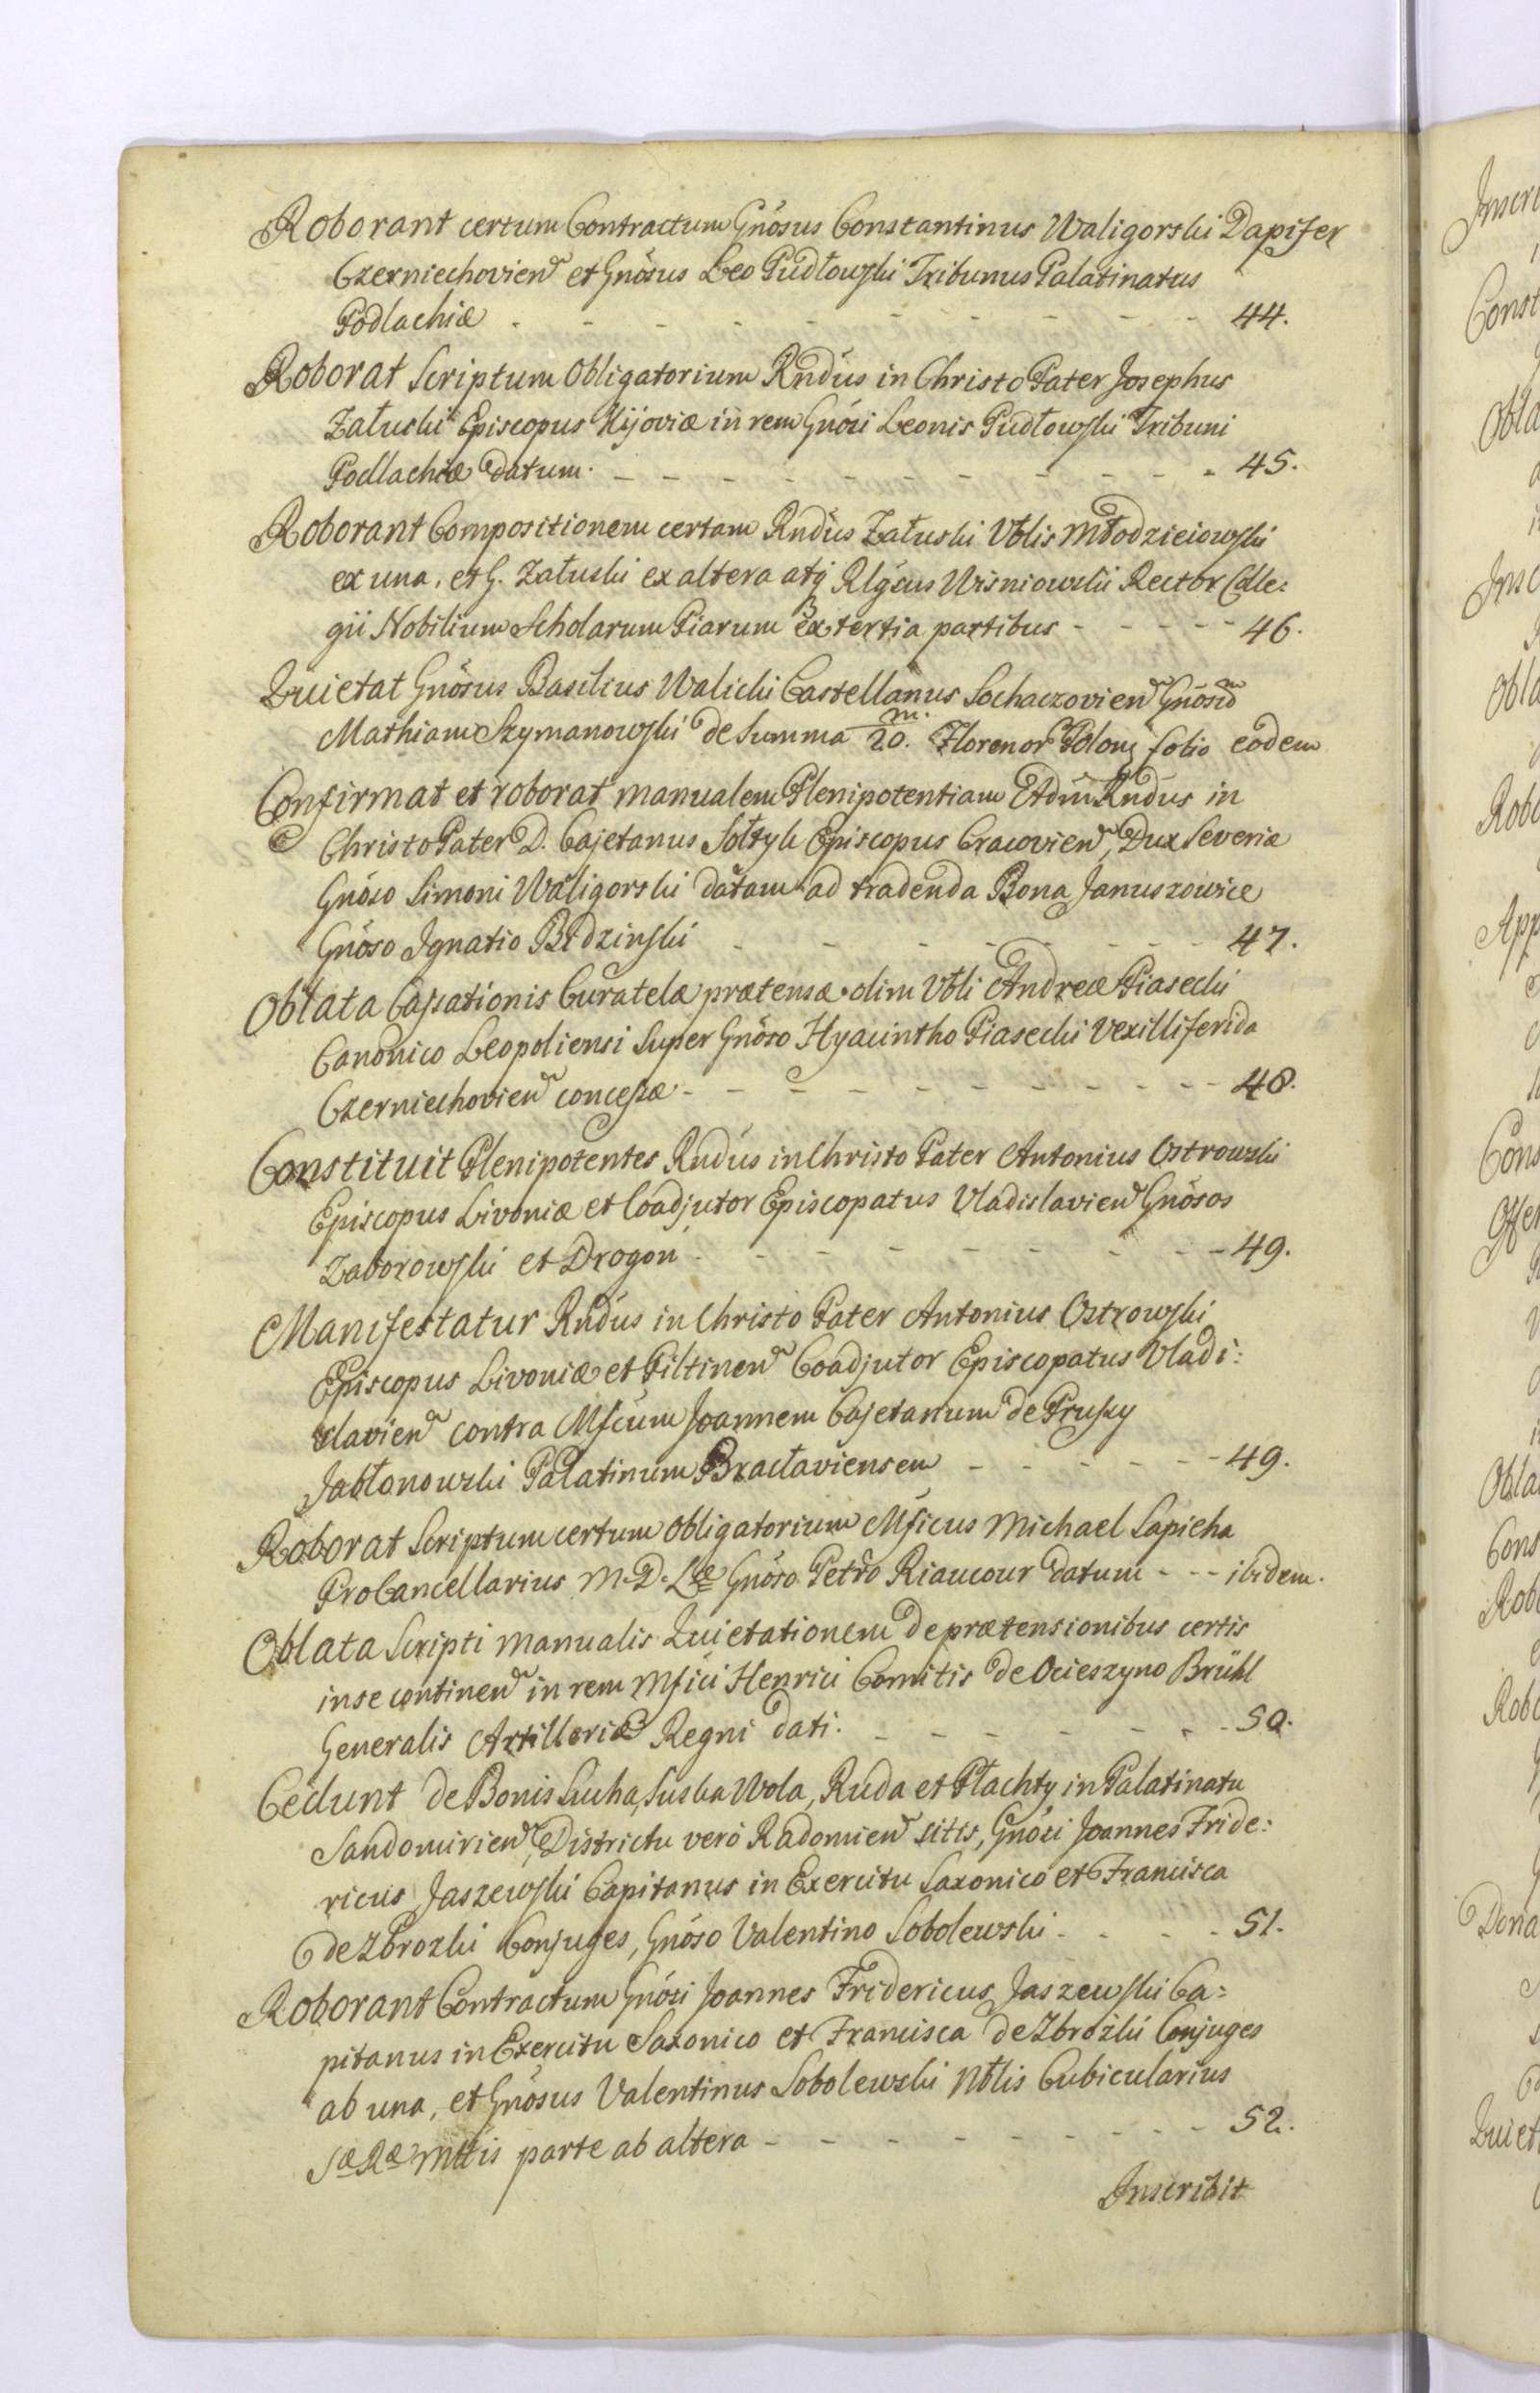 Roborant certum Contractum Gnősus Constantinus Waligorski Dapifer
Czerniechovien et Gnősus Leo Pudłowski Tribunus Palatinatus
Podlachiæ - - - - - - - - - - 44.
Roborat Scriptum Obligatorium Rndus in Christo Pater Josephus
Załuski Episcopus Kijoviæ in rem Gnősi Leonis Pudłowski Tribuni
Podlachiæ datum. - - - - - - - - - 45.
Roborant Compositionem certam Rndus Załuski Vblis Młodzieiowski
ex una, et G. Załuski ex altera atq Rlgsus Wisniowski Rector Colle:
gii Nobilium Scholarum Piarum ex tertia partibus - - - - - 46.
Quietat Gnősus Basilius Walicki Castellanus Sochaczovien Gnősum
Mathiam Szymanowski de Summa 20.m. Florenor Polon folio eodem
Confirmat et roborat manualem Plenipotentiam Rndus in
Christo Pater D. Cajetanus Sołtyk Episcopus Cracovien, Dux Severiæ
Gnőso Simoni Waligorski datam ad tradenda Bona Januszowice
Gnőso Ignatio Bidzinski - - - - - - - 47.
Oblata Cassationis Curatelæ prætensæ olim Vbli Andreæ Piasecki
Canonico Leopoliensi super Gnőso Hyacintho Piasecki Vexilliferida
Czerniechovien concessæ - - - - - - - - - 48.
Constituit Plenipotentes Rndus in Christo Pater Antonius Ostrowski
Episcopus Livoniæ et Coadjutor Episcopatus Vladislavien Gnősos
Zaborowski et Drogon - - - - - - - - 49.
Manifestatur Rndus in Christo Pater Antonius Ostrowski
Episcopus Livoniæ et Piltinen Coadjutor Episcopatus Vladi:
slavien contra Mficum Joannem Cajetanum de Prussy
Jabłonowski Palatinum Bracłaviensem - - - - - - 49.
Roborat Scriptum certum obligatorium Mficus Michael Sapieha
ProCancellarius M. D. Læ Gnőso Petro Riaucour datum - - - ibidem.
Oblata Scripti manualis Quietationem de prætensionibus certis
in se continen in rem Mfici Henrici Comitis de Ocieszyno Brühl
Generalis Artilleriæ Regni dati. - - - - - - 50.
Cedunt de Bonis Sucha, Suska Wola, Ruda et Płachty in Palatinatu
Sandomirien, Districtu verò Radomien sitis, Gnősi Joannes Fride:
ricus Jaszewski Capitanus in Exercitu Saxonico et Francisca
de Zbrozki Conjuges, Gnőso Valentino Sobolewski - - - - 51.
Roborant Contractum Gnősi Joannes Fridericus Jaszewski Ca:
pitanus in Exercitu Saxonico et Francisca de Zbrożki Conjuges
ab una, et Gnősus Valentinus Sobolewski Nblis Cubicularius
Sæ Ræ Mttis parte ab altera - - - - - - - - 52.
Inscribit